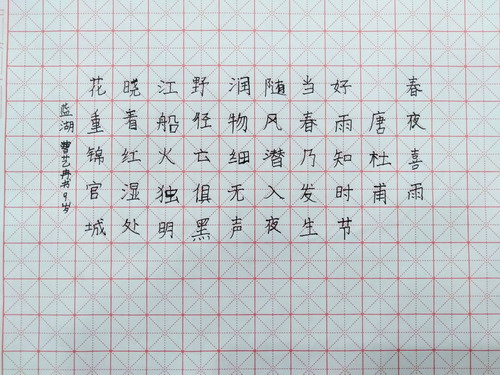 春夜喜雨
唐杜甫
好雨知时节
当春乃发生
随风潜入夜
润物细无声
野径云俱黑
江船火独明
晓看红湿处
花重锦官城
蓝湖 曹艺冉书9岁